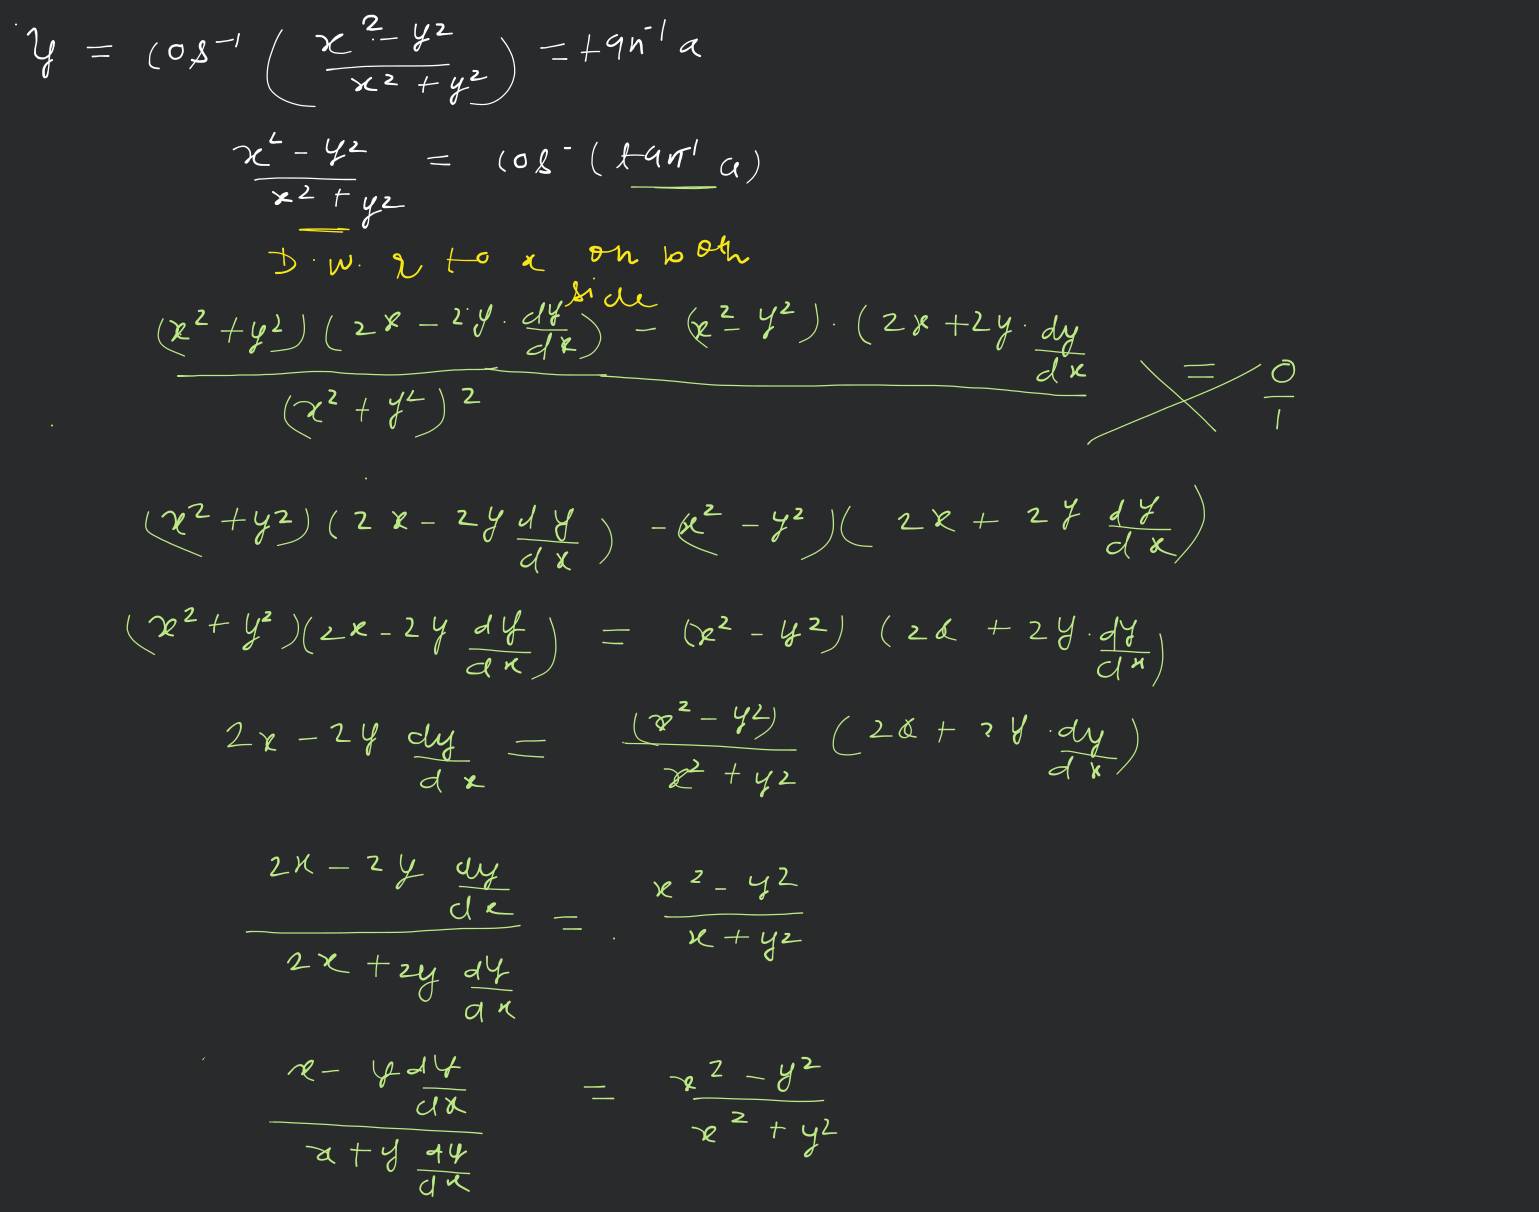 y = cos⁻¹ ( (x² - y²) / (x² + y²) ) = tan⁻¹ a
(x² - y²) / (x² + y²) = cos⁻ (tan⁻¹ a)
D.w.r to x on both
side
((x² + y²) (2x - 2y · dy/dx) - (x² - y²) · (2x + 2y · dy/dx) / (x² + y²)² = 0/1
(x² + y²) (2x - 2y dy/dx) - (x² - y²) (2x + 2y dy/dx)
(x² + y²) (2x - 2y dy/dx) = (x² - y²) (2x + 2y · dy/dx)
2x - 2y dy/dx = (x² - y²) / (x² + y²) (2x + 2y · dy/dx)
(2x - 2y dy/dx) / (2x + 2y dy/dx) = (x² - y²) / (x + y²)
(x - y dy/dx) / (x + y dy/dx) = (x² - y²) / (x² + y²)